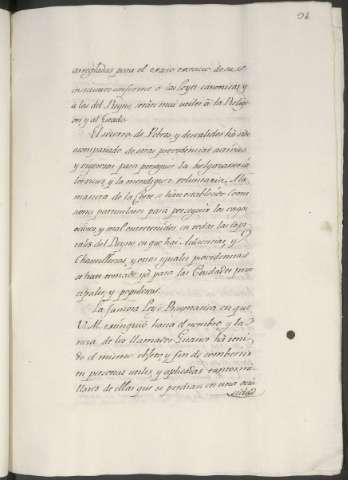 arregladas para el exacto exercicio de su
instituto conforme a las Leyes canonicas, y
a las del Reyno, serán mui utiles a la Religion
y al Estado.
El socorro de Pobres, y desvalidos ha sido
acompañado de otras providencias activas
y vigorosas para perseguir la holgazaneria
y la mendiguez voluntaria. A la
manera de la Corte se han establecido Comi-
siones particulares para perseguir los vagos
ociosos, y mal entretenidos en todas las Capi-
tales del Reyno en que hai Audiencias, y
Chancillerias, y otras iguales providencias
se han tomado ya para las Ciudades prin-
cipales, y populosas.
La famosa Ley o Pragmatica en que
V. M. extinguió hasta el nombre, y la
raza de los llamados Gitanos ha teni-
do el mismo objeto, y fin de convertir
en personas utiles, y aplicadas tantos mi-
llares de ellas que se perdian en una